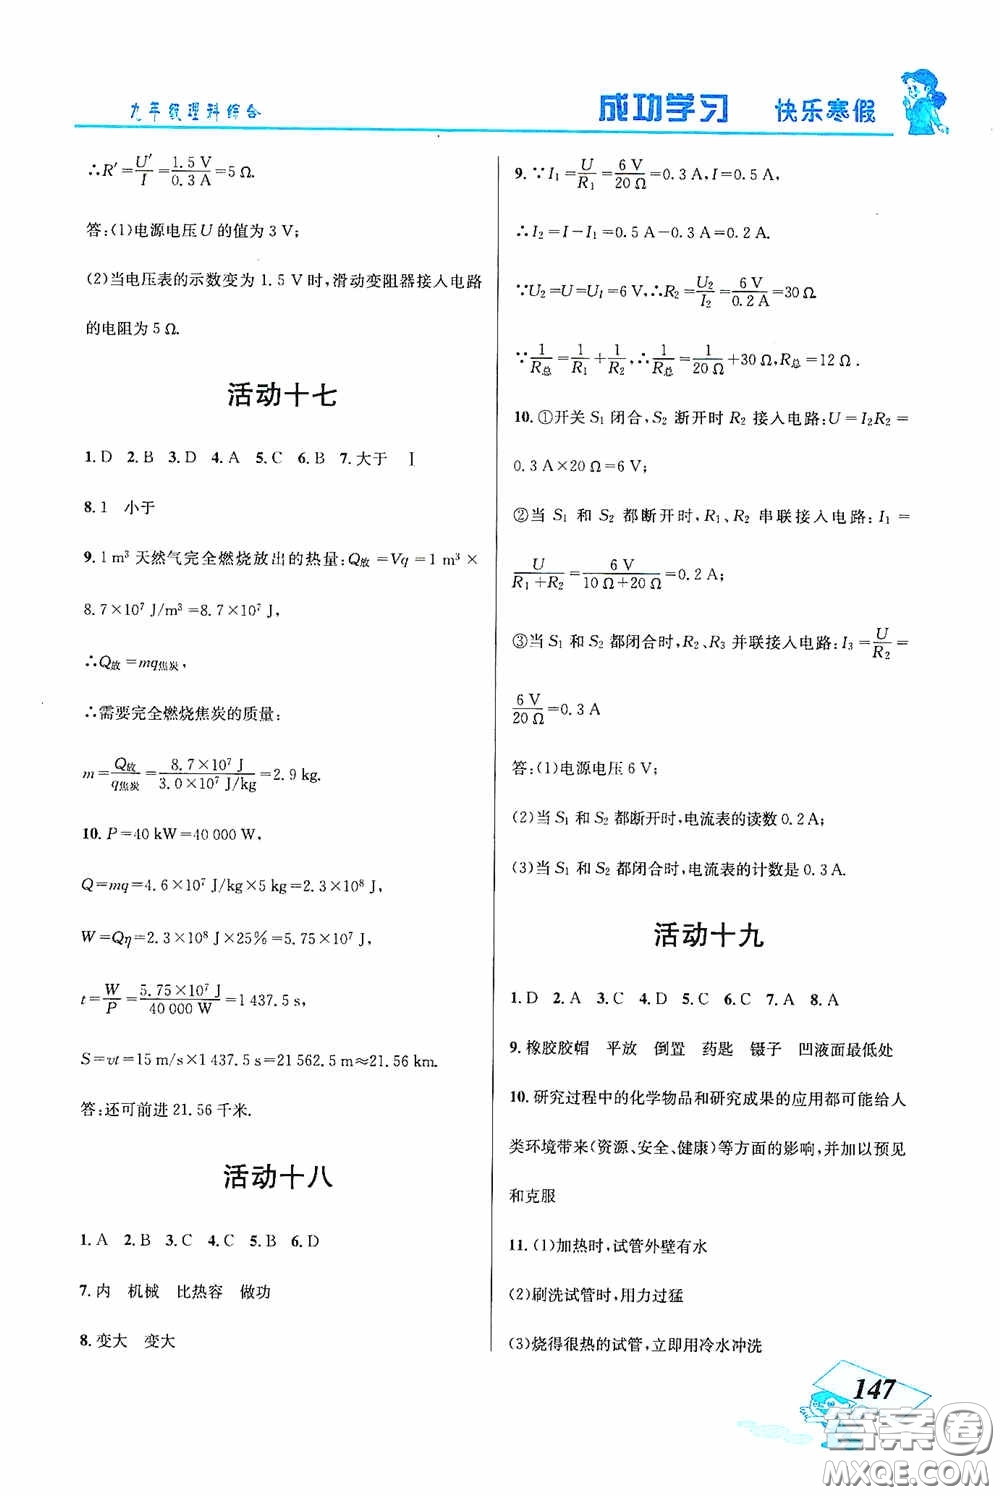 九年级理科综合
成功学习 快乐寒假
∴R′=U′/I=1.5 V/0.3 A=5 Ω.
答:(1)电源电压U的值为3 V;
(2)当电压表的示数变为1.5 V时,滑动变阻器接入电路
的电阻为5 Ω.
活动十七
1. D 2. B 3. D 4. A 5. C 6. B 7. 大于 Ⅰ
8. 1 小于
9. 1 m³ 天然气完全燃烧放出的热量:Q放=Vq=1 m³×
8.7×10⁷ J/m³=8.7×10⁷ J,
∴Q放=mq焦炭,
∴需要完全燃烧焦炭的质量:
m=Q放/q焦炭=8.7×10⁷ J/3.0×10⁷ J/kg=2.9 kg.
10. P=40 kW=40 000 W,
Q=mq=4.6×10⁷ J/kg×5 kg=2.3×10⁸ J,
W=Qη=2.3×10⁸ J×25%=5.75×10⁷ J,
t=W/P=5.75×10⁷ J/40 000 W=1 437.5 s,
S=vt=15 m/s×1 437.5 s=21 562.5 m≈21.56 km.
答:还可前进21.56千米.
活动十八
1. A 2. B 3. C 4. C 5. B 6. D
7. 内 机械 比热容 做功
8. 变大 变大
9. ∵I₁=U/R₁=6 V/20 Ω=0.3 A,I=0.5 A,
∴I₂=I−I₁=0.5 A−0.3 A=0.2 A.
∵U₂=U=U₁=6 V,∴R₂=U₂/I₂=6 V/0.2 A=30 Ω.
∵1/R总=1/R₁+1/R₂,∴1/R总=1/20 Ω+30 Ω,R总=12 Ω.
10. ①开关 S₁ 闭合,S₂ 断开时 R₂ 接入电路:U=I₂R₂=
0.3 A×20 Ω=6 V;
②当 S₁ 和 S₂ 都断开时,R₁、R₂ 串联接入电路:I₁=
U/R₁+R₂=6 V/10 Ω+20 Ω=0.2 A;
③当 S₁ 和 S₂ 都闭合时,R₂、R₃ 并联接入电路:I₃=U/R₂=
6 V/20 Ω=0.3 A
答:(1)电源电压6 V;
(2)当 S₁ 和 S₂ 都断开时,电流表的读数0.2 A;
(3)当 S₁ 和 S₂ 都闭合时,电流表的计数是0.3 A.
活动十九
1. D 2. A 3. C 4. D 5. C 6. C 7. A 8. A
9. 橡胶胶帽 平放 倒置 药匙 镊子 凹液面最低处
10. 研究过程中的化学物品和研究成果的应用都可能给人
类环境带来(资源、安全、健康)等方面的影响,并加以预见
和克服
11. (1)加热时,试管外壁有水
(2)刷洗试管时,用力过猛
(3)烧得很热的试管,立即用冷水冲洗
147
答案卷
MXQE.COM